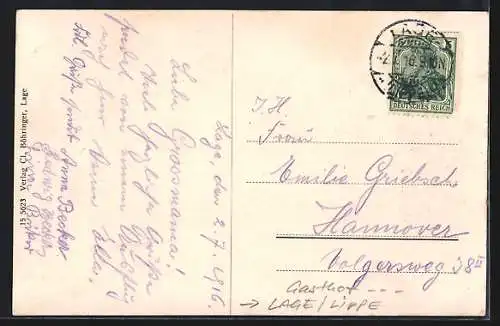 Lage, den 2.7.1916.
Liebe Grossmama!
Viele herzliche Grüße
sendet von einem Ausflug
nach hier Deine
Ella.
Frdl. Grüße sendet Anna Becker
Ludwig Becker
15 5623 Verlag Cl. Böhringer, Lage
LAGE
DEUTSCHES REICH
I. H.
Frau
Emilie Griebsch
Hannover
Volgersweg 38 II
Gasthof ---
→ LAGE/LIPPE